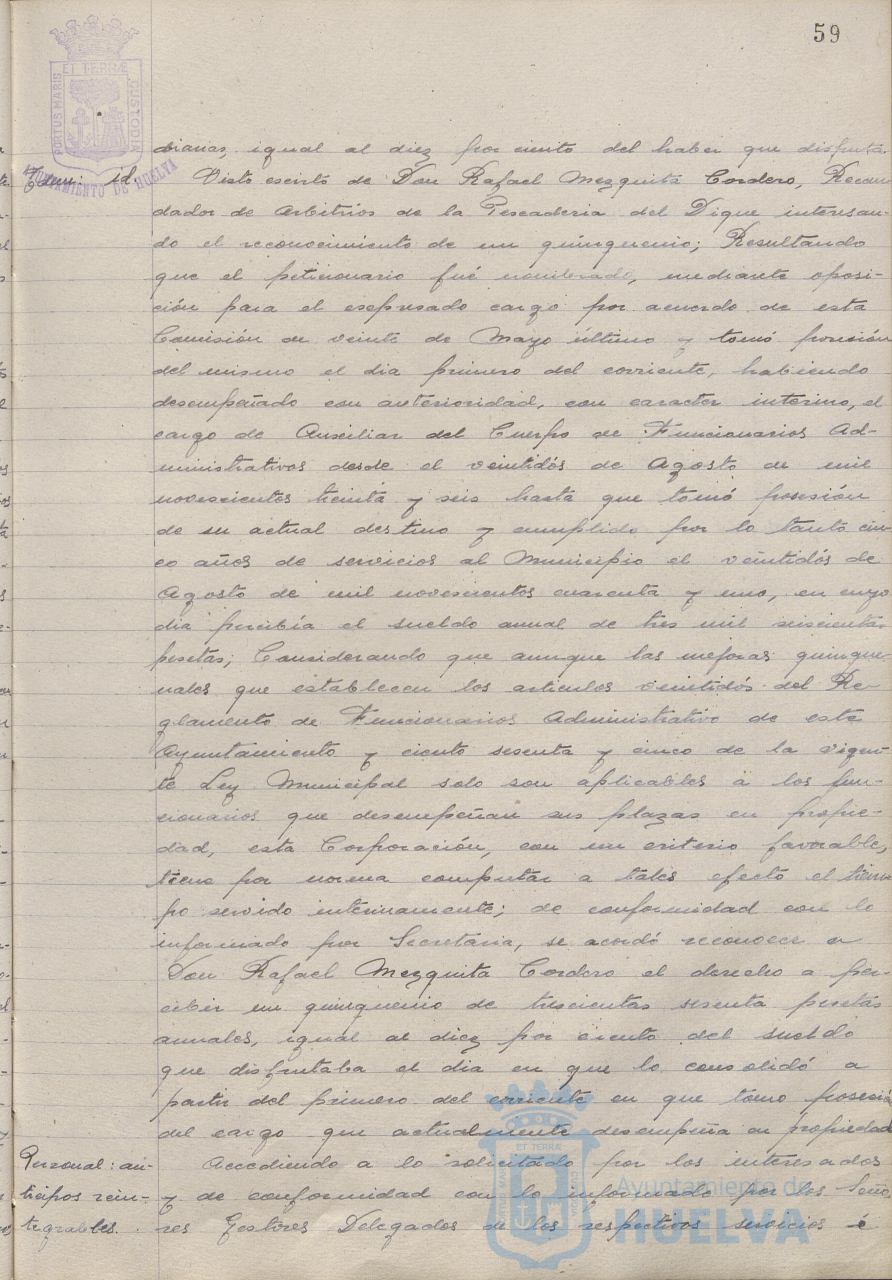 59
PORTUS MARIS ET TERRÆ CUSTODIA
AYUNTAMIENTO DE HUELVA
diarias, igual al diez por ciento del haber que disfruta.
Idem: id.
Visto escrito de Don Rafael Mezquita Cordero, Recau-
dador de Arbitrios de la Pescaderia del Dique interesan-
do el reconocimiento de un quinquenio; Resultando
que el peticionario fué nombrado, mediante oposi-
ción para el esepresado cargo por acuerdo de esta
Comisión de veinte de Mayo último y tomó posesión
del mismo el dia primero del corriente, habiendo
desempeñado con anterioridad, con caracter interino, el
cargo de Auxiliar del Cuerpo de Funcionarios Ad-
ministrativos desde el veintidós de Agosto de mil
novescientos treinta y seis hasta que tomó posesión
de su actual destino y cumplido por lo tanto cin-
co años de servicios al Municipio el veintidós de
Agosto de mil novescientos cuarenta y uno, en cuyo
dia percibía el sueldo anual de tres mil seiscientas
pesetas; Considerando que aunque las mejoras quinque-
nales que establecen los articulos veintidós del Re-
glamento de Funcionarios Administrativo de este
Ayuntamiento y ciento sesenta y cinco de la vigen-
te Ley Municipal solo son aplicables a los fun-
cionarios que desempeñan sus plazas en propie-
dad, esta Corporación, con un criterio favorable,
tiene por norma computar a tales efecto el tiem-
po servido interinamente; de conformidad con lo
informado por Secretaria, se acordó reconocer a
Don Rafael Mezquita Cordero el derecho a per-
cibir un quinquenio de trescientas sesenta pesetas
anuales, igual al diez por ciento del sueldo
que disfrutaba el dia en que lo consolidó a
partir del primero del corriente en que tomo posesión
del cargo que actualmente desempeña en propiedad
Personal: an-
ticipos rein-
tegrables.
Accediendo a lo solicitado por los interesados
y de conformidad con lo informado por los Seño-
res Gestores Delegados de los respectivos servicios é
Ayuntamiento de
HUELVA